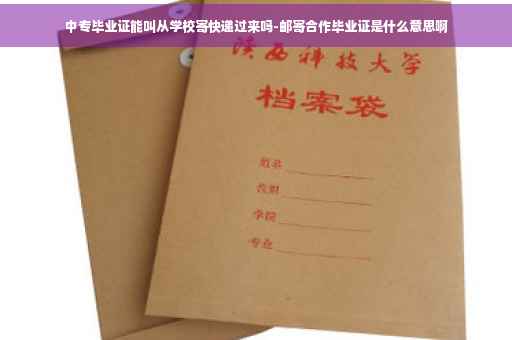 中专毕业证能叫从学校寄快递过来吗-邮寄合作毕业证是什么意思啊
陕西科技大学
档案袋
姓名
性别
学院
专业